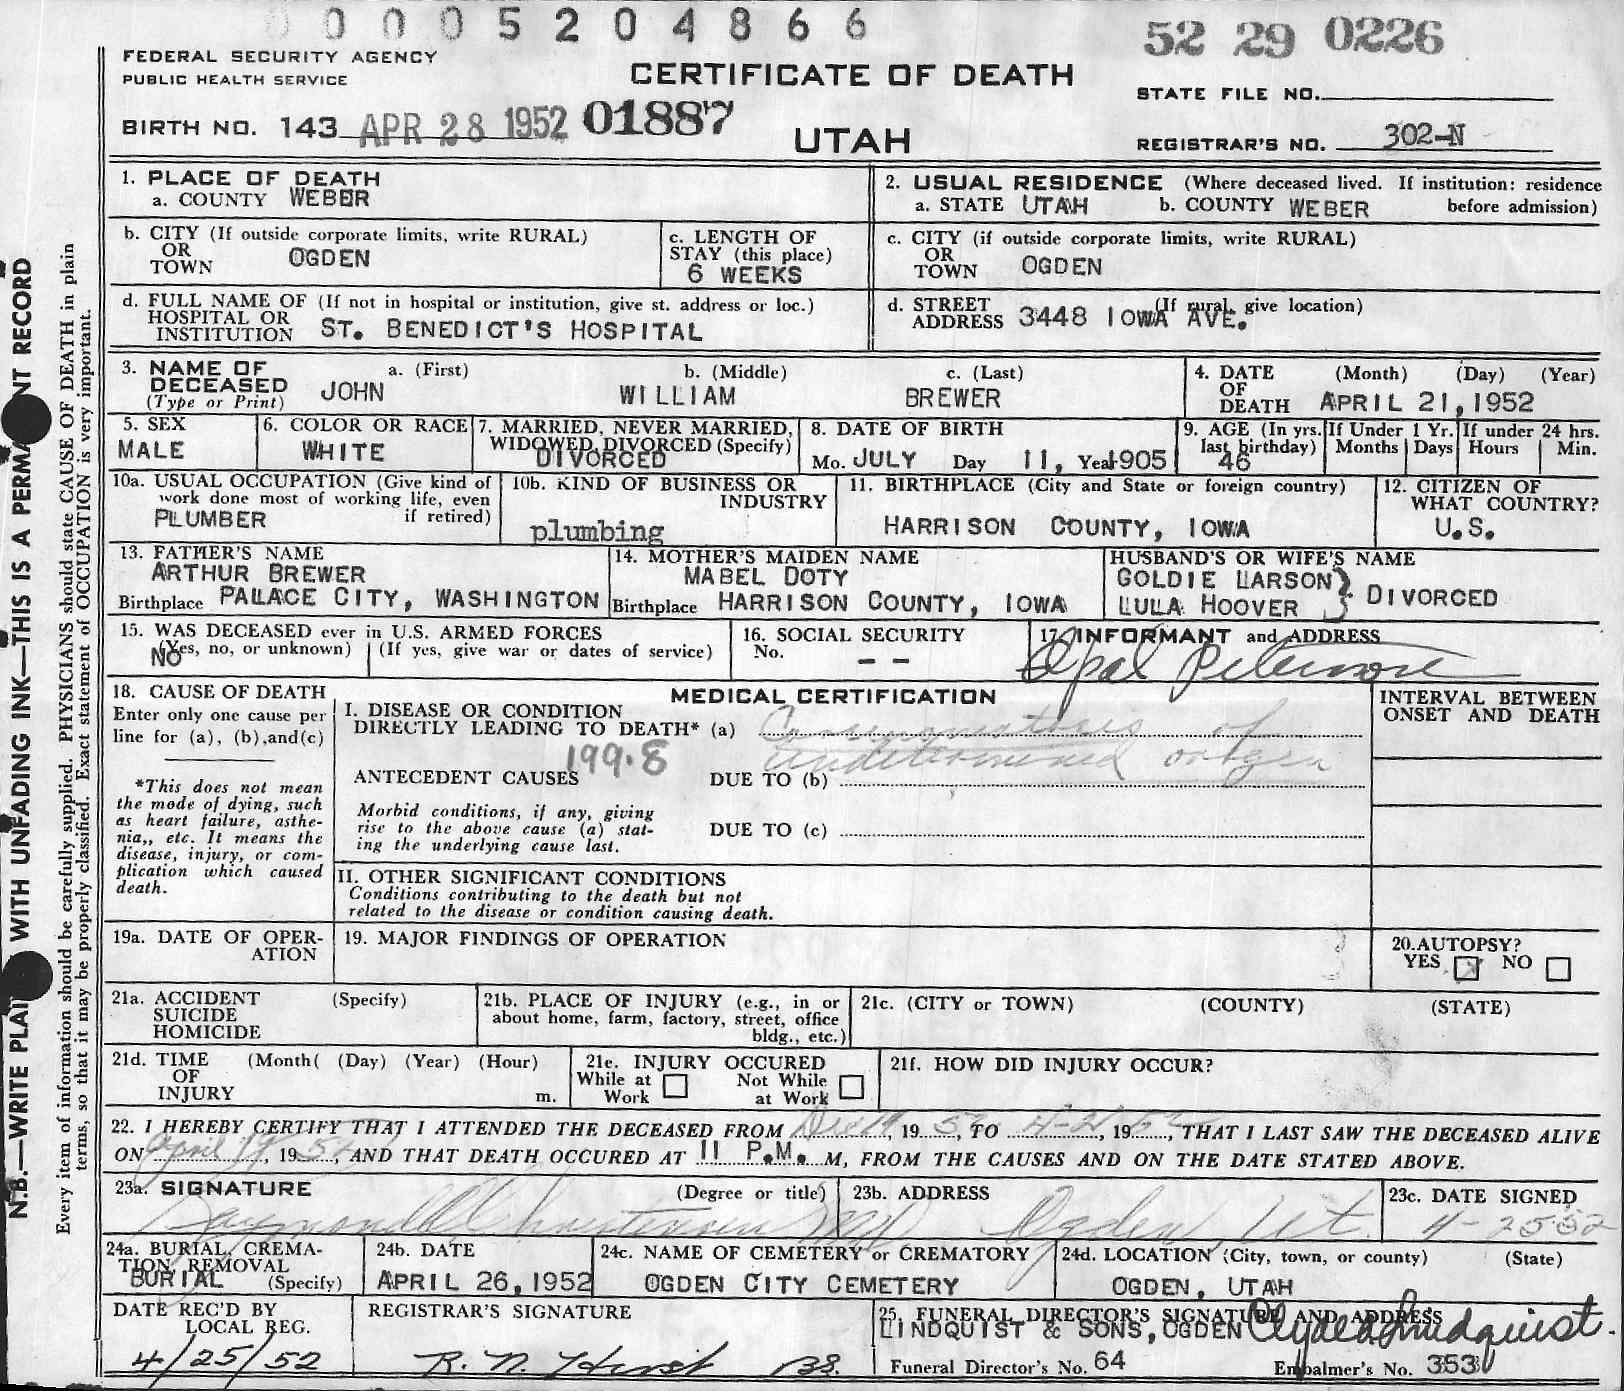 0 0 0 5 2 0 4 8 6 6
52 29 0226
FEDERAL SECURITY AGENCY
PUBLIC HEALTH SERVICE
CERTIFICATE OF DEATH
STATE FILE NO.
BIRTH NO. 143 APR 28 1952 01887
UTAH
REGISTRAR'S NO. 302-N
1. PLACE OF DEATH
a. COUNTY WEBER
2. USUAL RESIDENCE (Where deceased lived. If institution: residence
a. STATE UTAH b. COUNTY WEBER before admission)
b. CITY (If outside corporate limits, write RURAL)
OR
TOWN OGDEN
c. LENGTH OF
STAY (this place)
6 WEEKS
c. CITY (if outside corporate limits, write RURAL)
OR
TOWN OGDEN
d. FULL NAME OF (If not in hospital or institution, give st. address or loc.)
HOSPITAL OR
INSTITUTION ST. BENEDICT'S HOSPITAL
d. STREET (If rural, give location)
ADDRESS 3448 IOWA AVE.
3. NAME OF a. (First) b. (Middle) c. (Last)
DECEASED JOHN WILLIAM BREWER
(Type or Print)
4. DATE (Month) (Day) (Year)
OF
DEATH APRIL 21, 1952
5. SEX
MALE
6. COLOR OR RACE
WHITE
7. MARRIED, NEVER MARRIED,
WIDOWED, DIVORCED (Specify)
DIVORCED
8. DATE OF BIRTH
Mo. JULY Day 11, Year 1905
9. AGE (In yrs.
last birthday)
46
If Under 1 Yr.
Months Days
If under 24 hrs.
Hours Min.
10a. USUAL OCCUPATION (Give kind of
work done most of working life, even
if retired)
PLUMBER
10b. KIND OF BUSINESS OR
INDUSTRY
plumbing
11. BIRTHPLACE (City and State or foreign country)
HARRISON COUNTY, IOWA
12. CITIZEN OF
WHAT COUNTRY?
U.S.
13. FATHER'S NAME
ARTHUR BREWER
Birthplace PALACE CITY, WASHINGTON
14. MOTHER'S MAIDEN NAME
MABEL DOTY
Birthplace HARRISON COUNTY, IOWA
HUSBAND'S OR WIFE'S NAME
GOLDIE LARSON
LULA HOOVER } DIVORCED
15. WAS DECEASED ever in U.S. ARMED FORCES
(Yes, no, or unknown) (If yes, give war or dates of service)
NO
16. SOCIAL SECURITY
No. --
17. INFORMANT and ADDRESS
Opal
18. CAUSE OF DEATH
Enter only one cause per
line for (a), (b), and (c)
*This does not mean
the mode of dying, such
as heart failure, asthe-
nia,, etc. It means the
disease, injury, or com-
plication which caused
death.
MEDICAL CERTIFICATION
I. DISEASE OR CONDITION
DIRECTLY LEADING TO DEATH* (a) of
undetermined
199.8
ANTECEDENT CAUSES DUE TO (b)
Morbid conditions, if any, giving
rise to the above cause (a) stat-
ing the underlying cause last.
DUE TO (c)
INTERVAL BETWEEN
ONSET AND DEATH
II. OTHER SIGNIFICANT CONDITIONS
Conditions contributing to the death but not
related to the disease or condition causing death.
19a. DATE OF OPER-
ATION
19. MAJOR FINDINGS OF OPERATION
20. AUTOPSY?
YES NO
21a. ACCIDENT (Specify)
SUICIDE
HOMICIDE
21b. PLACE OF INJURY (e.g., in or
about home, farm, factory, street, office
bldg., etc.)
21c. (CITY or TOWN) (COUNTY) (STATE)
21d. TIME (Month( (Day) (Year) (Hour)
OF
INJURY m.
21e. INJURY OCCURED
While at Not While
Work at Work
21f. HOW DID INJURY OCCUR?
22. I HEREBY CERTIFY THAT I ATTENDED THE DECEASED FROM , 19 52, TO 4-21, 19 52, THAT I LAST SAW THE DECEASED ALIVE
ON April 19, 19 52, AND THAT DEATH OCCURED AT 11 P.M. M, FROM THE CAUSES AND ON THE DATE STATED ABOVE.
23a. SIGNATURE (Degree or title)
Raymond MD
23b. ADDRESS
Ogden, Ut.
23c. DATE SIGNED
4-25 52
24a. BURIAL, CREMA-
TION, REMOVAL
BURIAL (Specify)
24b. DATE
APRIL 26, 1952
24c. NAME OF CEMETERY or CREMATORY
OGDEN CITY CEMETERY
24d. LOCATION (City, town, or county) (State)
OGDEN, UTAH
DATE REC'D BY
LOCAL REG.
4/25/52
REGISTRAR'S SIGNATURE
R. N. Hirst BS.
25. FUNERAL DIRECTOR'S SIGNATURE AND ADDRESS
LINDQUIST & SONS, OGDEN Clyde Lindquist.
Funeral Director's No. 64 Embalmer's No. 353
N.B.—WRITE PLAI WITH UNFADING INK—THIS IS A PERMA NT RECORD
Every item of information should be carefully supplied. PHYSICIANS should state CAUSE OF DEATH in plain
terms, so that it may be properly classified. Exact statement of OCCUPATION is very important.